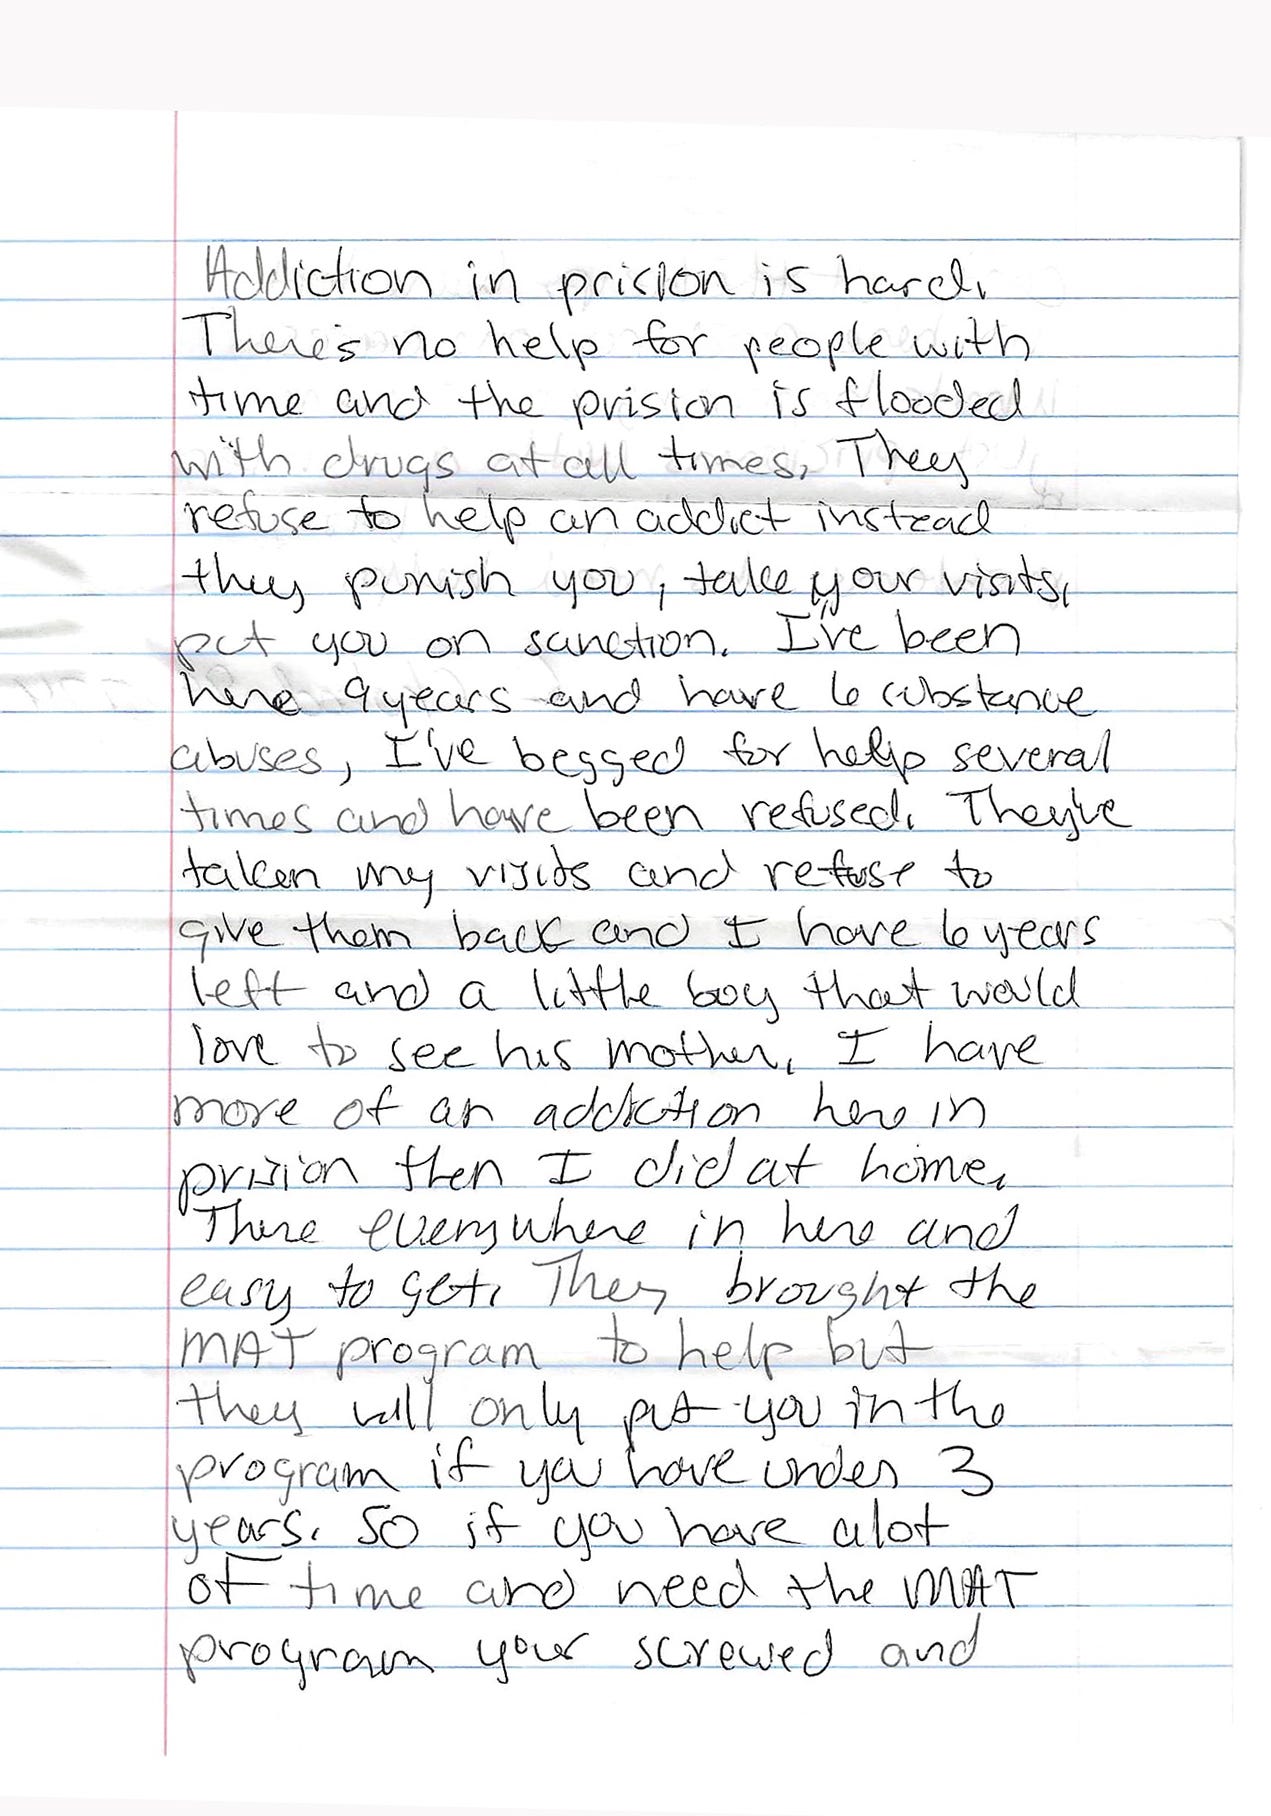 Addiction in prision is hard.
There's no help for people with
time and the prision is flooded
with drugs at all times. They
refuse to help an addict instead
they punish you, take your visits,
put you on sanction. I've been
here 9 years and have 6 substance
abuses, I've begged for help several
times and have been refused. They've
taken my visits and refuse to
give them back and I have 6 years
left and a little boy that would
love to see his mother. I have
more of an addiction here in
prision then I did at home.
There everywhere in here and
easy to get. They brought the
MAT program to help but
they will only put you in the
program if you have under 3
years. So if you have alot
of time and need the MAT
program your screwed and